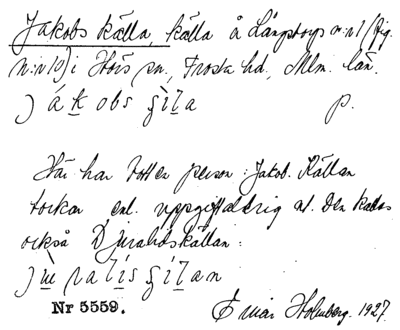 Jakobs källa, källa å Långstorps n:r 1 (fig.
N:r 10) i Hörs sn., Frosta hd., Mlm. län.
p.
Här har bott en person: Jakob. Källan
torkar enl. uppgift aldrig ut. Den kallas
också Djuralidskällan:
Nr 5559.
Einar Holmberg. 1927.